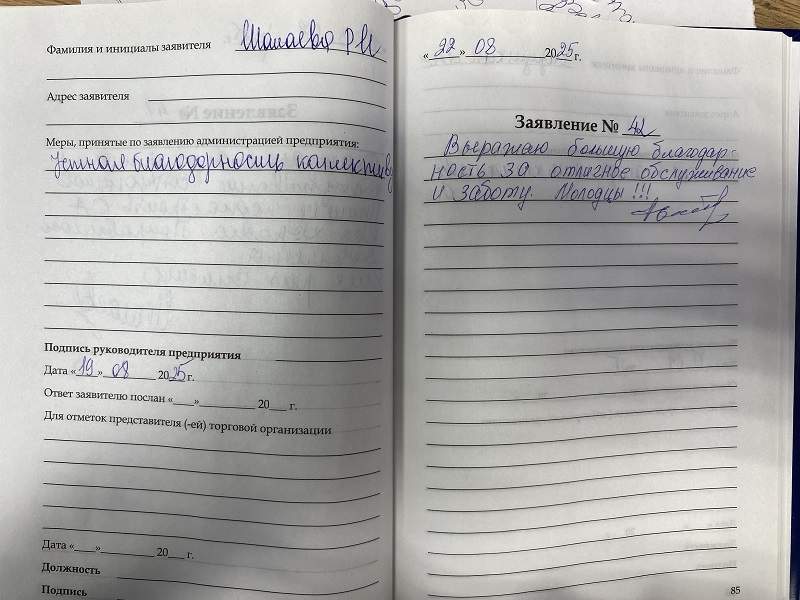 Фамилия и инициалы заявителя Шалаева Р И
Адрес заявителя
Меры, принятые по заявлению администрацией предприятия:
Устная благодарность коллективу
Подпись руководителя предприятия
Дата «19» 08 2025 г.
Ответ заявителю послан «___»________ 20___ г.
Для отметок представителя (-ей) торговой организации
Дата «___»________ 20___ г.
Должность
Подпись
«22» 08 2025 г.
Заявление № 42
Выражаю большую благодар-
ность за отличное обслуживание
и заботу. Молодцы!!!
85